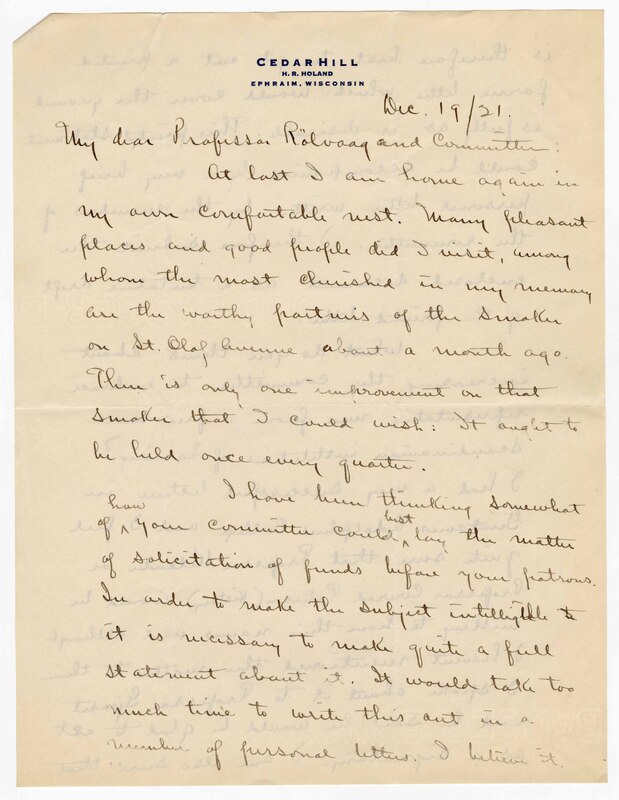 CEDAR HILL
H. R. HOLAND
EPHRAIM, WISCONSIN
Dec. 19/21.
My dear Professor Rölvaag and Committee:
At last I am home again in
my own comfortable nest. Many pleasant
places and good people did I visit, among
whom the most cherished in my memory
are the worthy partners of the smoker
on St. Olaf Avenue about a month ago.
There is only one improvement on that
smoker that I could wish: It ought to
be held once every quarter.
I have been thinking somewhat
of how your committee could best lay the matter
of solicitation of funds before your patrons.
In order to make the subject intelligible to
it is necessary to make quite a full
statement about it. It would take too
much time to write this out in a
number of personal letters. I believe it